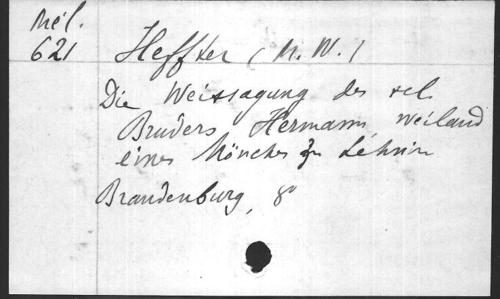 Mél.
621
Heffter (M. W.)
Die Weissagung des sel.
Bruders Hermann, weiland
eines Mönches zu Lehnin
Brandenburg, 8°